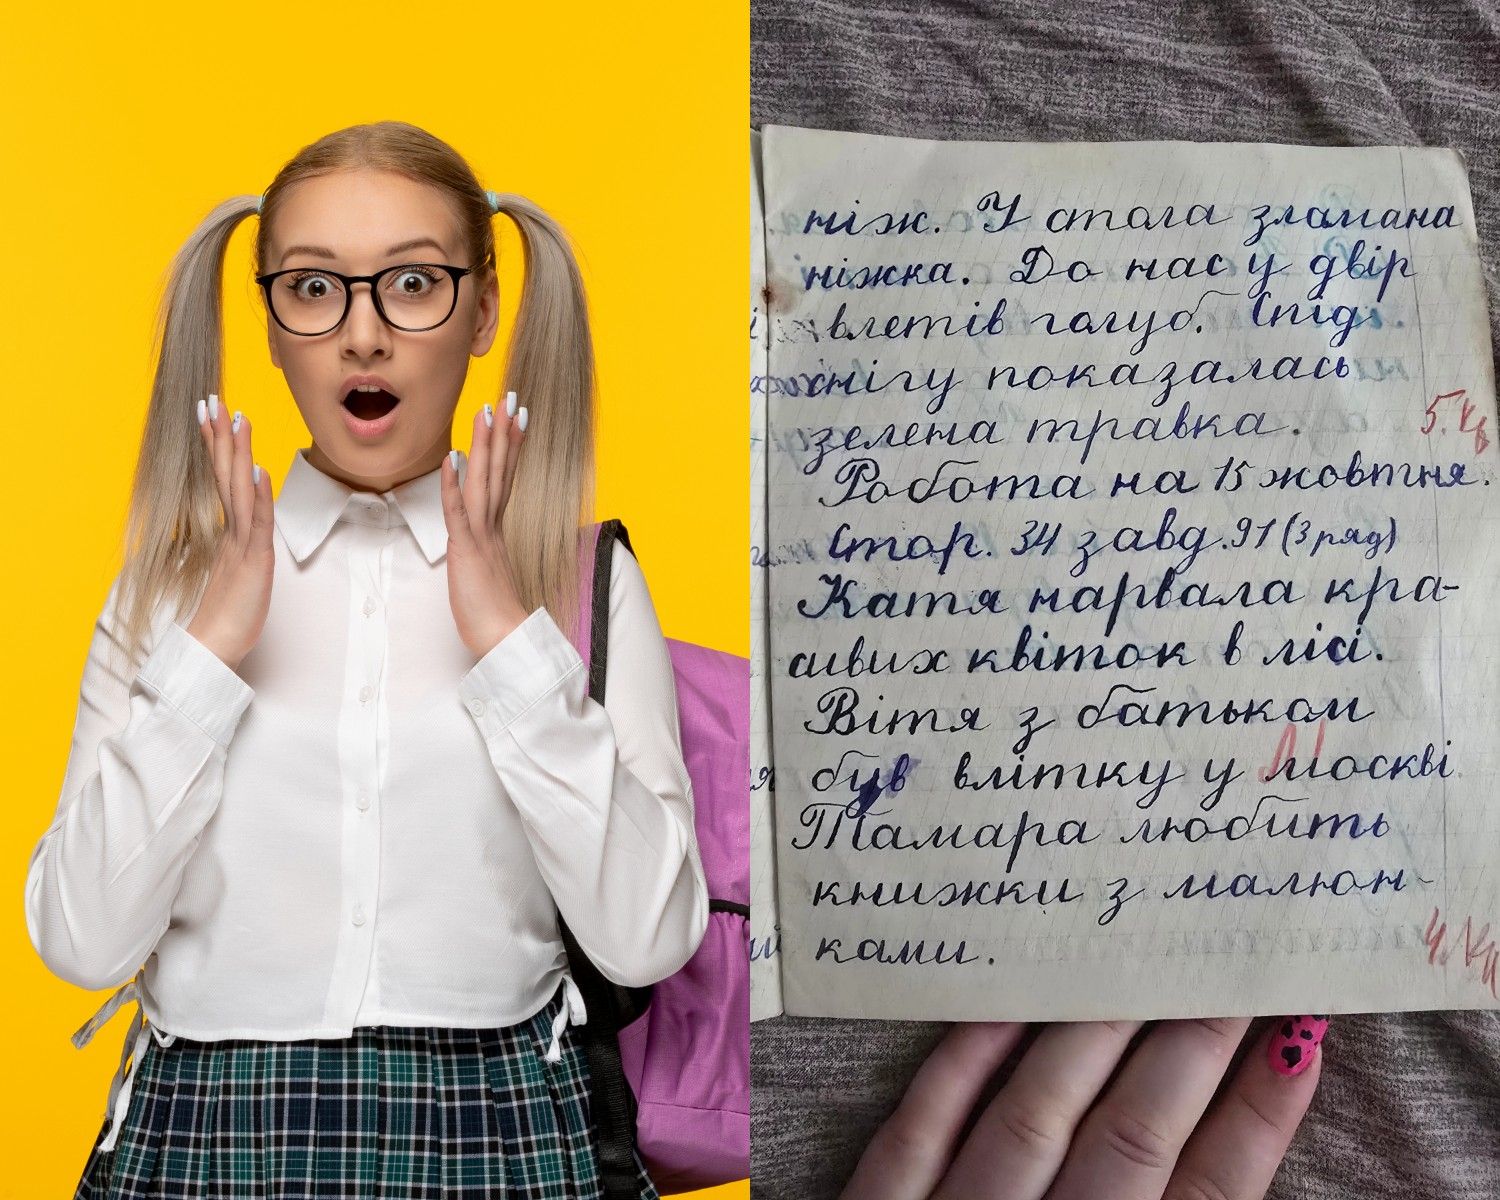 ніж. У стола зламана
ніжка. До нас у двір
влетів голуб. Спід
снігу показалась
зелена травка.
5.
Робота на 15 жовтня.
Стор. 34 завд. 91 (3 ряд)
Катя нарвала кра-
сивих квіток в лісі.
Вітя з батьком
був влітку у Москві
Тамара любить
книжки з малюн-
ками.
4.